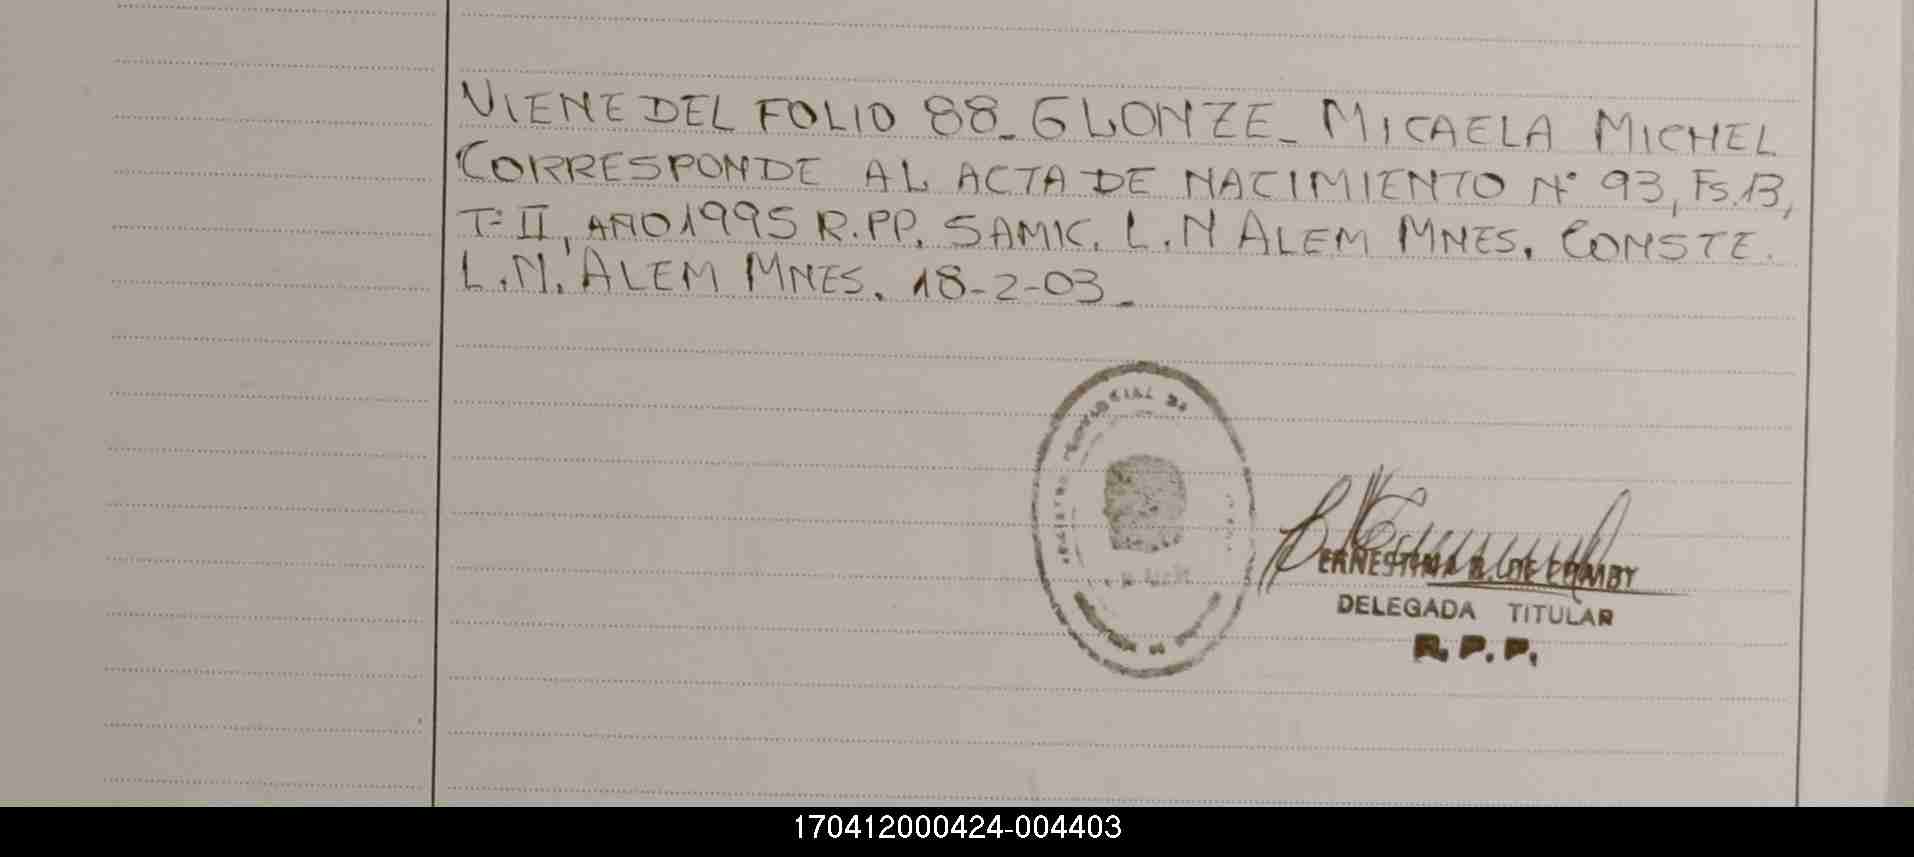 VIENE DEL FOLIO 88_ GLONZE_ MICAELA MICHEL
CORRESPONDE AL ACTA DE NACIMIENTO N° 93, Fs.13,
T:II, AÑO 1995 R.PP. SAMIC. L.N ALEM MNES. CONSTE.
L.N. ALEM MNES. 18-2-03_
ERNESTINA
DELEGADA TITULAR
R.P.P.
170412000424-004403